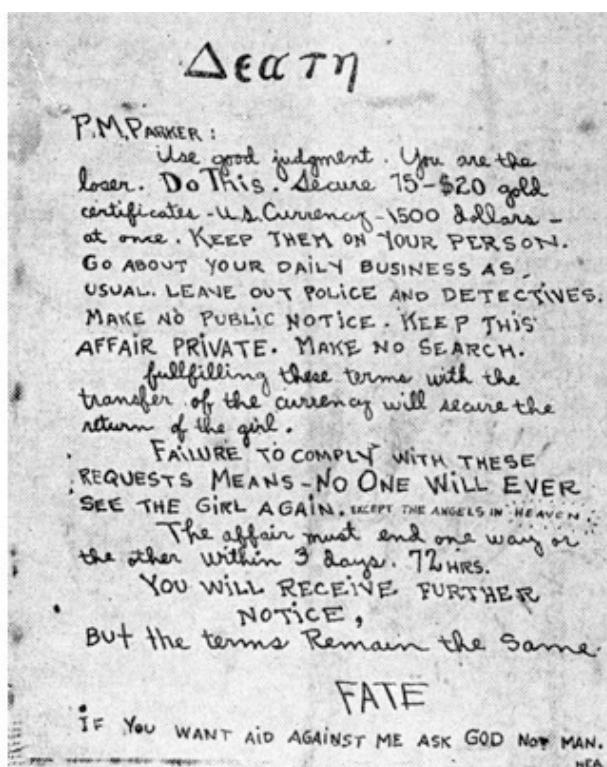 Δεατη
P.M. PARKER:
Use good judgment. You are the
loser. Do This. Secure 75-$20 gold
certificates - U.S. Currency - 1500 dollars -
at once. KEEP THEM ON YOUR PERSON.
GO ABOUT YOUR DAILY BUSINESS AS
USUAL. LEAVE OUT POLICE AND DETECTIVES.
MAKE NO PUBLIC NOTICE. KEEP THIS
AFFAIR PRIVATE. MAKE NO SEARCH.
fullfilling these terms with the
transfer of the currency will secure the
return of the girl.
FAILURE TO COMPLY WITH THESE
REQUESTS MEANS - NO ONE WILL EVER
SEE THE GIRL AGAIN. EXCEPT THE ANGELS IN HEAVEN
The affair must end one way or
the other within 3 days. 72 HRS.
YOU WILL RECEIVE FURTHER
NOTICE,
But the terms Remain the Same.
FATE
IF YOU WANT AID AGAINST ME ASK GOD NOT MAN.
NEA